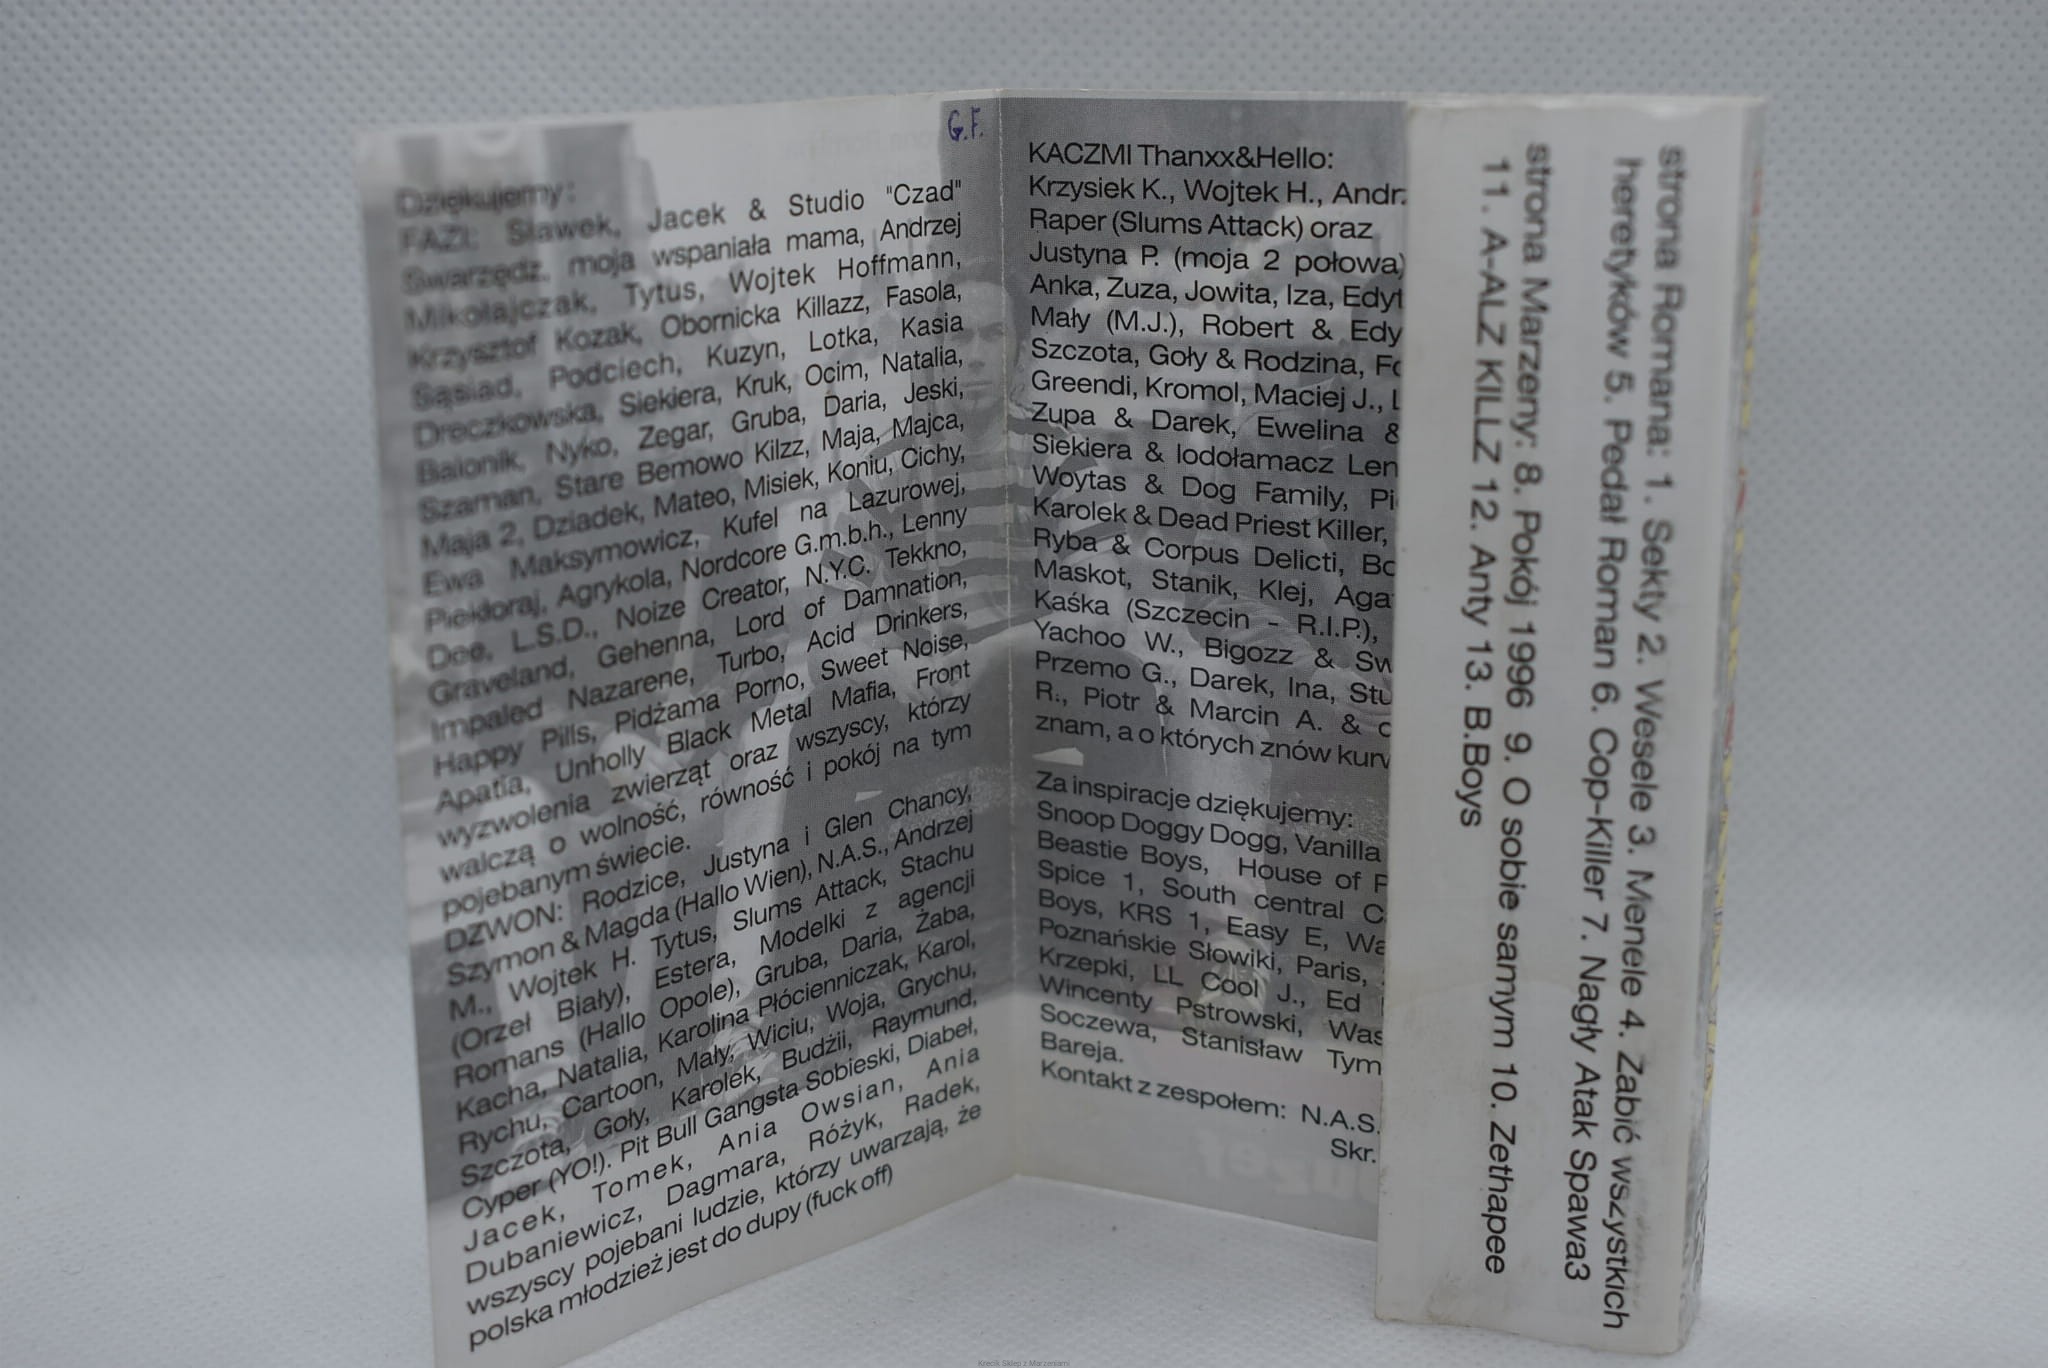 G.F.
Dziękujemy:
FAZI: Sławek, Jacek & Studio "Czad"
Swarzędz, moja wspaniała mama, Andrzej
Mikołajczak, Tytus, Wojtek Hoffmann,
Krzysztof Kozak, Obornicka Killazz, Fasola,
Sąsiad, Podciech, Kuzyn, Lotka, Kasia
Dreczkowska, Siekiera, Kruk, Ocim, Natalia,
Baionik, Nyko, Zegar, Gruba, Daria, Jeski,
Szaman, Stare Bemowo Kilzz, Maja, Majca,
Maja 2, Dziadek, Mateo, Misiek, Koniu, Cichy,
Ewa Maksymowicz, Kufel na Lazurowej,
Piekloraj, Agrykola, Nordcore G.m.b.h., Lenny
Dee, L.S.D., Noize Creator, N.Y.C. Tekkno,
Graveland, Gehenna, Lord of Damnation,
Impaled Nazarene, Turbo, Acid Drinkers,
Happy Pills, Pidżama Porno, Sweet Noise,
Apatia, Unholly Black Metal Mafia, Front
wyzwolenia zwierząt oraz wszyscy, którzy
walczą o wolność, równość i pokój na tym
pojebanym świecie.
DZWON: Rodzice, Justyna i Glen Chancy,
Szymon & Magda (Hallo Wien), N.A.S., Andrzej
M., Wojtek H. Tytus, Slums Attack, Stachu
(Orzeł Biały), Estera, Modelki z agencji
Romans (Hallo Opole), Gruba, Daria, Żaba,
Kacha, Natalia, Karolina Płócienniczak, Karol,
Rychu, Cartoon, Mały, Wiciu, Woja, Grychu,
Szczota, Goły, Karolek, Budżii, Raymund,
Cyper (YO!). Pit Bull Gangsta Sobieski, Diabeł,
Jacek, Tomek, Ania Owsian, Ania
Dubaniewicz, Dagmara, Różyk, Radek,
wszyscy pojebani ludzie, którzy uwarzają, że
polska młodzież jest do dupy (fuck off)
KACZMI Thanxx&Hello:
Krzysiek K., Wojtek H., Andr.
Raper (Slums Attack) oraz
Justyna P. (moja 2 połowa)
Anka, Zuza, Jowita, Iza, Edyt
Mały (M.J.), Robert & Edy
Szczota, Goły & Rodzina, Fo
Greendi, Kromol, Maciej J., L
Zupa & Darek, Ewelina &
Siekiera & lodołamacz Len
Woytas & Dog Family, Pi
Karolek & Dead Priest Killer,
Ryba & Corpus Delicti, Bo
Maskot, Stanik, Klej, Aga
Kaśka (Szczecin - R.I.P.),
Yachoo W., Bigozz & Sw
Przemo G., Darek, Ina, Stu
R., Piotr & Marcin A. & c
znam, a o których znów kurw
Za inspiracje dziękujemy:
Snoop Doggy Dogg, Vanilla
Beastie Boys, House of P
Spice 1, South central C
Boys, KRS 1, Easy E, Wa
Poznańskie Słowiki, Paris,
Krzepki, LL Cool J., Ed
Wincenty Pstrowski, Was
Soczewa, Stanisław Tym
Bareja.
Kontakt z zespołem: N.A.S.
Skr.
strona Romana: 1. Sekty 2. Wesele 3. Menele 4. Zabić wszystkich
heretyków 5. Pedał Roman 6. Cop-Killer 7. Nagły Atak Spawa3
strona Marzeny: 8. Pokój 1996 9. O sobie samym 10. Zethapee
11. A-ALZ KILLZ 12. Anty 13. B.Boys
Krecik Sklep z Marzeniami